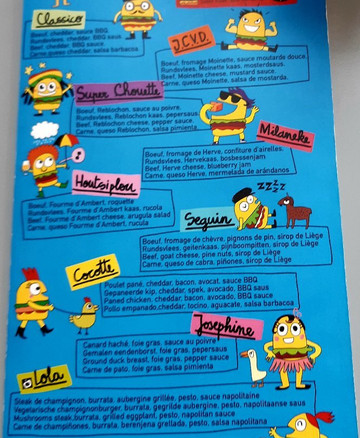 Classico
Boeuf, cheddar, sauce BBQ.
Rundsvlees, cheddar, BBQ saus.
Beef, cheddar, BBQ sauce.
Carne queso cheddar, salsa barbacoa.
J.C.V.D.
Boeuf, fromage Moinette, sauce moutarde douce.
Rundsvlees, Moinette kaas, mosterdsaus.
Beef, Moinette cheese, mustard sauce.
Carne, queso Moinette, salsa de mostarda.
Super Chouette
Boeuf, Reblochon, sauce au poivre.
Rundsvlees, Reblochon kaas, pepersaus
Beef, Reblochon cheese, pepper sauce.
Carne, queso Reblochon, salsa pimienta
Milaneke
Boeuf, fromage de Herve, confiture d'airelles.
Rundsvlees, Hervekaas, bosbessenjam
Beef, Herve cheese, blueberry jam
Carne, queso Herve, mermelada de arándanos
Houtsiplou
Boeuf, Fourme d'Ambert, roquette
Rundsvlees, Fourme d'Ambert kaas, rucola
Beef, Fourme d'Ambert cheese, arugula salad
Carne, queso Fourme d'Ambert, rucula
zzzz
Seguin
Boeuf, fromage de chèvre, pignons de pin, sirop de Liège
Rundsvlees, geitenkaas, pijnboompitten, sirop de Liège
Beef, goat cheese, pine nuts, sirop de Liège
Carne, queso de cabra, piñones, sirop de Liège
Cocotte
Poulet pané, cheddar, bacon, avocat, sauce BBQ
Gepaneerde kip, cheddar, spek, avocado, BBQ saus
Paned chicken, cheddar, bacon, avocado, BBQ sauce
Pollo empanado, cheddar, tocino, aguacate, salsa barbacoa
Josephine
Canard haché, foie gras, sauce au poivre
Gemalen eendenborst, foie gras, pepersaus
Ground duck breast, foie gras, pepper sauce
Carne de pato, foie gras, salsa pimienta
Lola
Steak de champignon, burrata, aubergine grillée, pesto, sauce napolitaine
Vegetarische champignonburger, burrata, gegrilde aubergine, pesto, napolitaanse saus
Mushrooms steak, burrata, grilled eggplant, pesto, napolitan sauce
Carne de champiñones, burrata, berenjena grellada, pesto, salsa napolitana